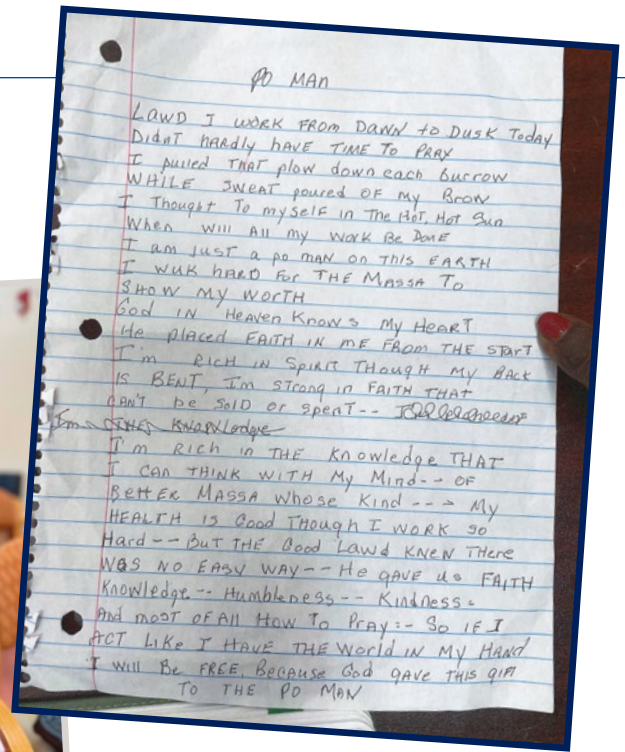 PO MAN
LAWD I WORK FROM DAWN to DUSK Today
DIDNT hardly have TIME TO PRAY
I pulled THAT plow down each burrow
WHILE SWEAT poured OF My Brow
I Thought To myself in The HOT, Hot Sun
When will All my work Be DONE
I am JUST a po MAN on THIS EARTH
I WUK HARD For THE MASSA TO
SHOW MY WORTH
God IN HEAVEN KNOWS My HEART
He placed FAITH in ME FROM THE START
I'm RICH IN SPIRIT THOUGH My BACK
IS BENT, I'm STRONG in FAITH THAT
CAN'T be SOLD or spent--
I'm THE KNOWLedge
I'm RICH in THE Knowledge THAT
I CAN THINK WITH My Mind-- OF
BettER MASSA whose Kind --- My
HEALTH IS Good THough I WORK SO
Hard-- BUT THE Good Lawd KNEW THERE
WAS NO EASY WAY-- He gAVE us FAITH
Knowledge-- Humbleness-- Kindness.
And mOST OF All How To Pray:- So IF I
ACT LIKE I HAVE THE World IN My HAND
I will Be FREE, Because God gAVE THIS gift
TO THE PO MAN